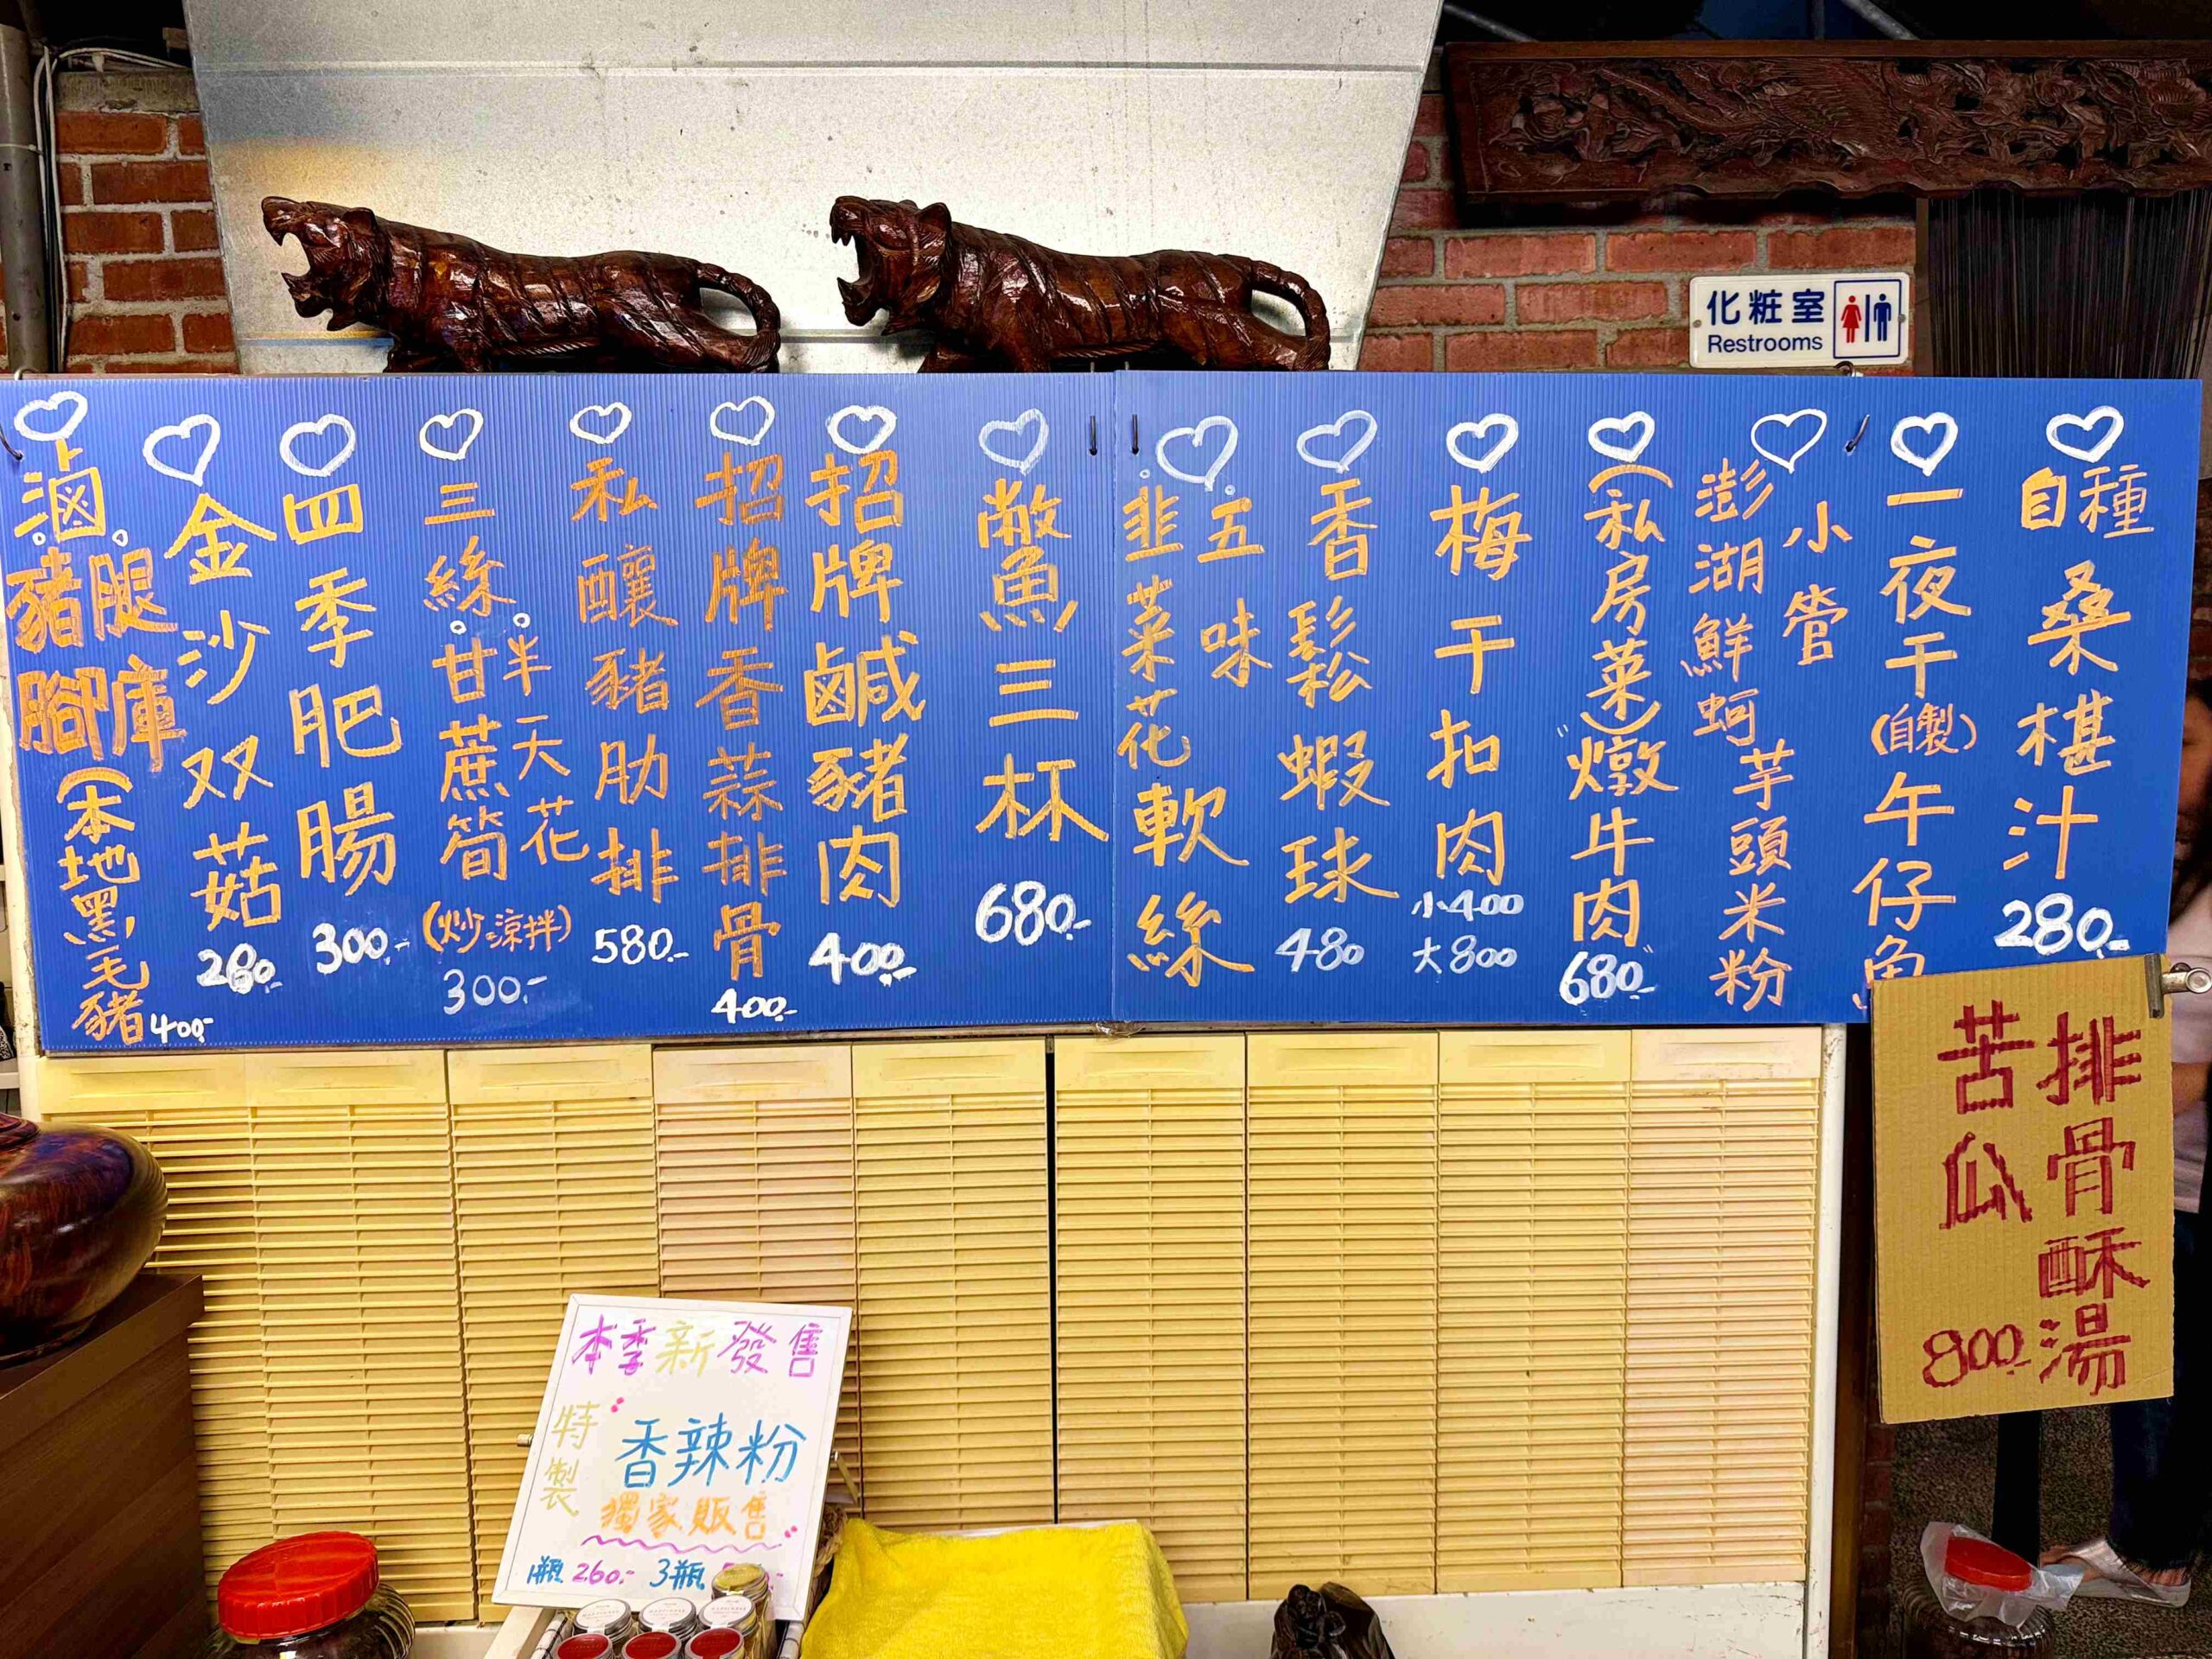 化粧室
Restrooms
自種桑椹汁 280.-
一夜干(自製)午仔魚
小管
澎湖鮮蚵
芋頭米粉
(私房菜)"燉牛肉" 680.-
梅干扣肉
小400
大800
香鬆蝦球 480
五味
韭菜花
軟絲
鱉三杯 680.-
招牌鹹豬肉 400.-
招牌香蒜排骨 400.-
私釀豬肋排 580.-
三絲
半天花
甘蔗筍
(炒。涼拌)
300.-
四季肥腸 300.-
金沙双菇 280.-
滷
豬腳
腿庫
(本地黑毛豬 400.-
排骨酥湯
苦瓜
800.-
本季新發售
特製
香辣粉
獨家販售
1瓶 260.- 3瓶